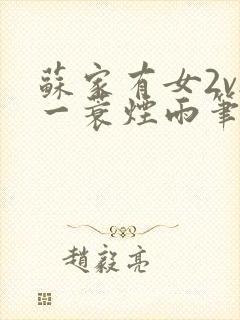 蘇家有女2v
一蓑煙雨筆
趙毅亮